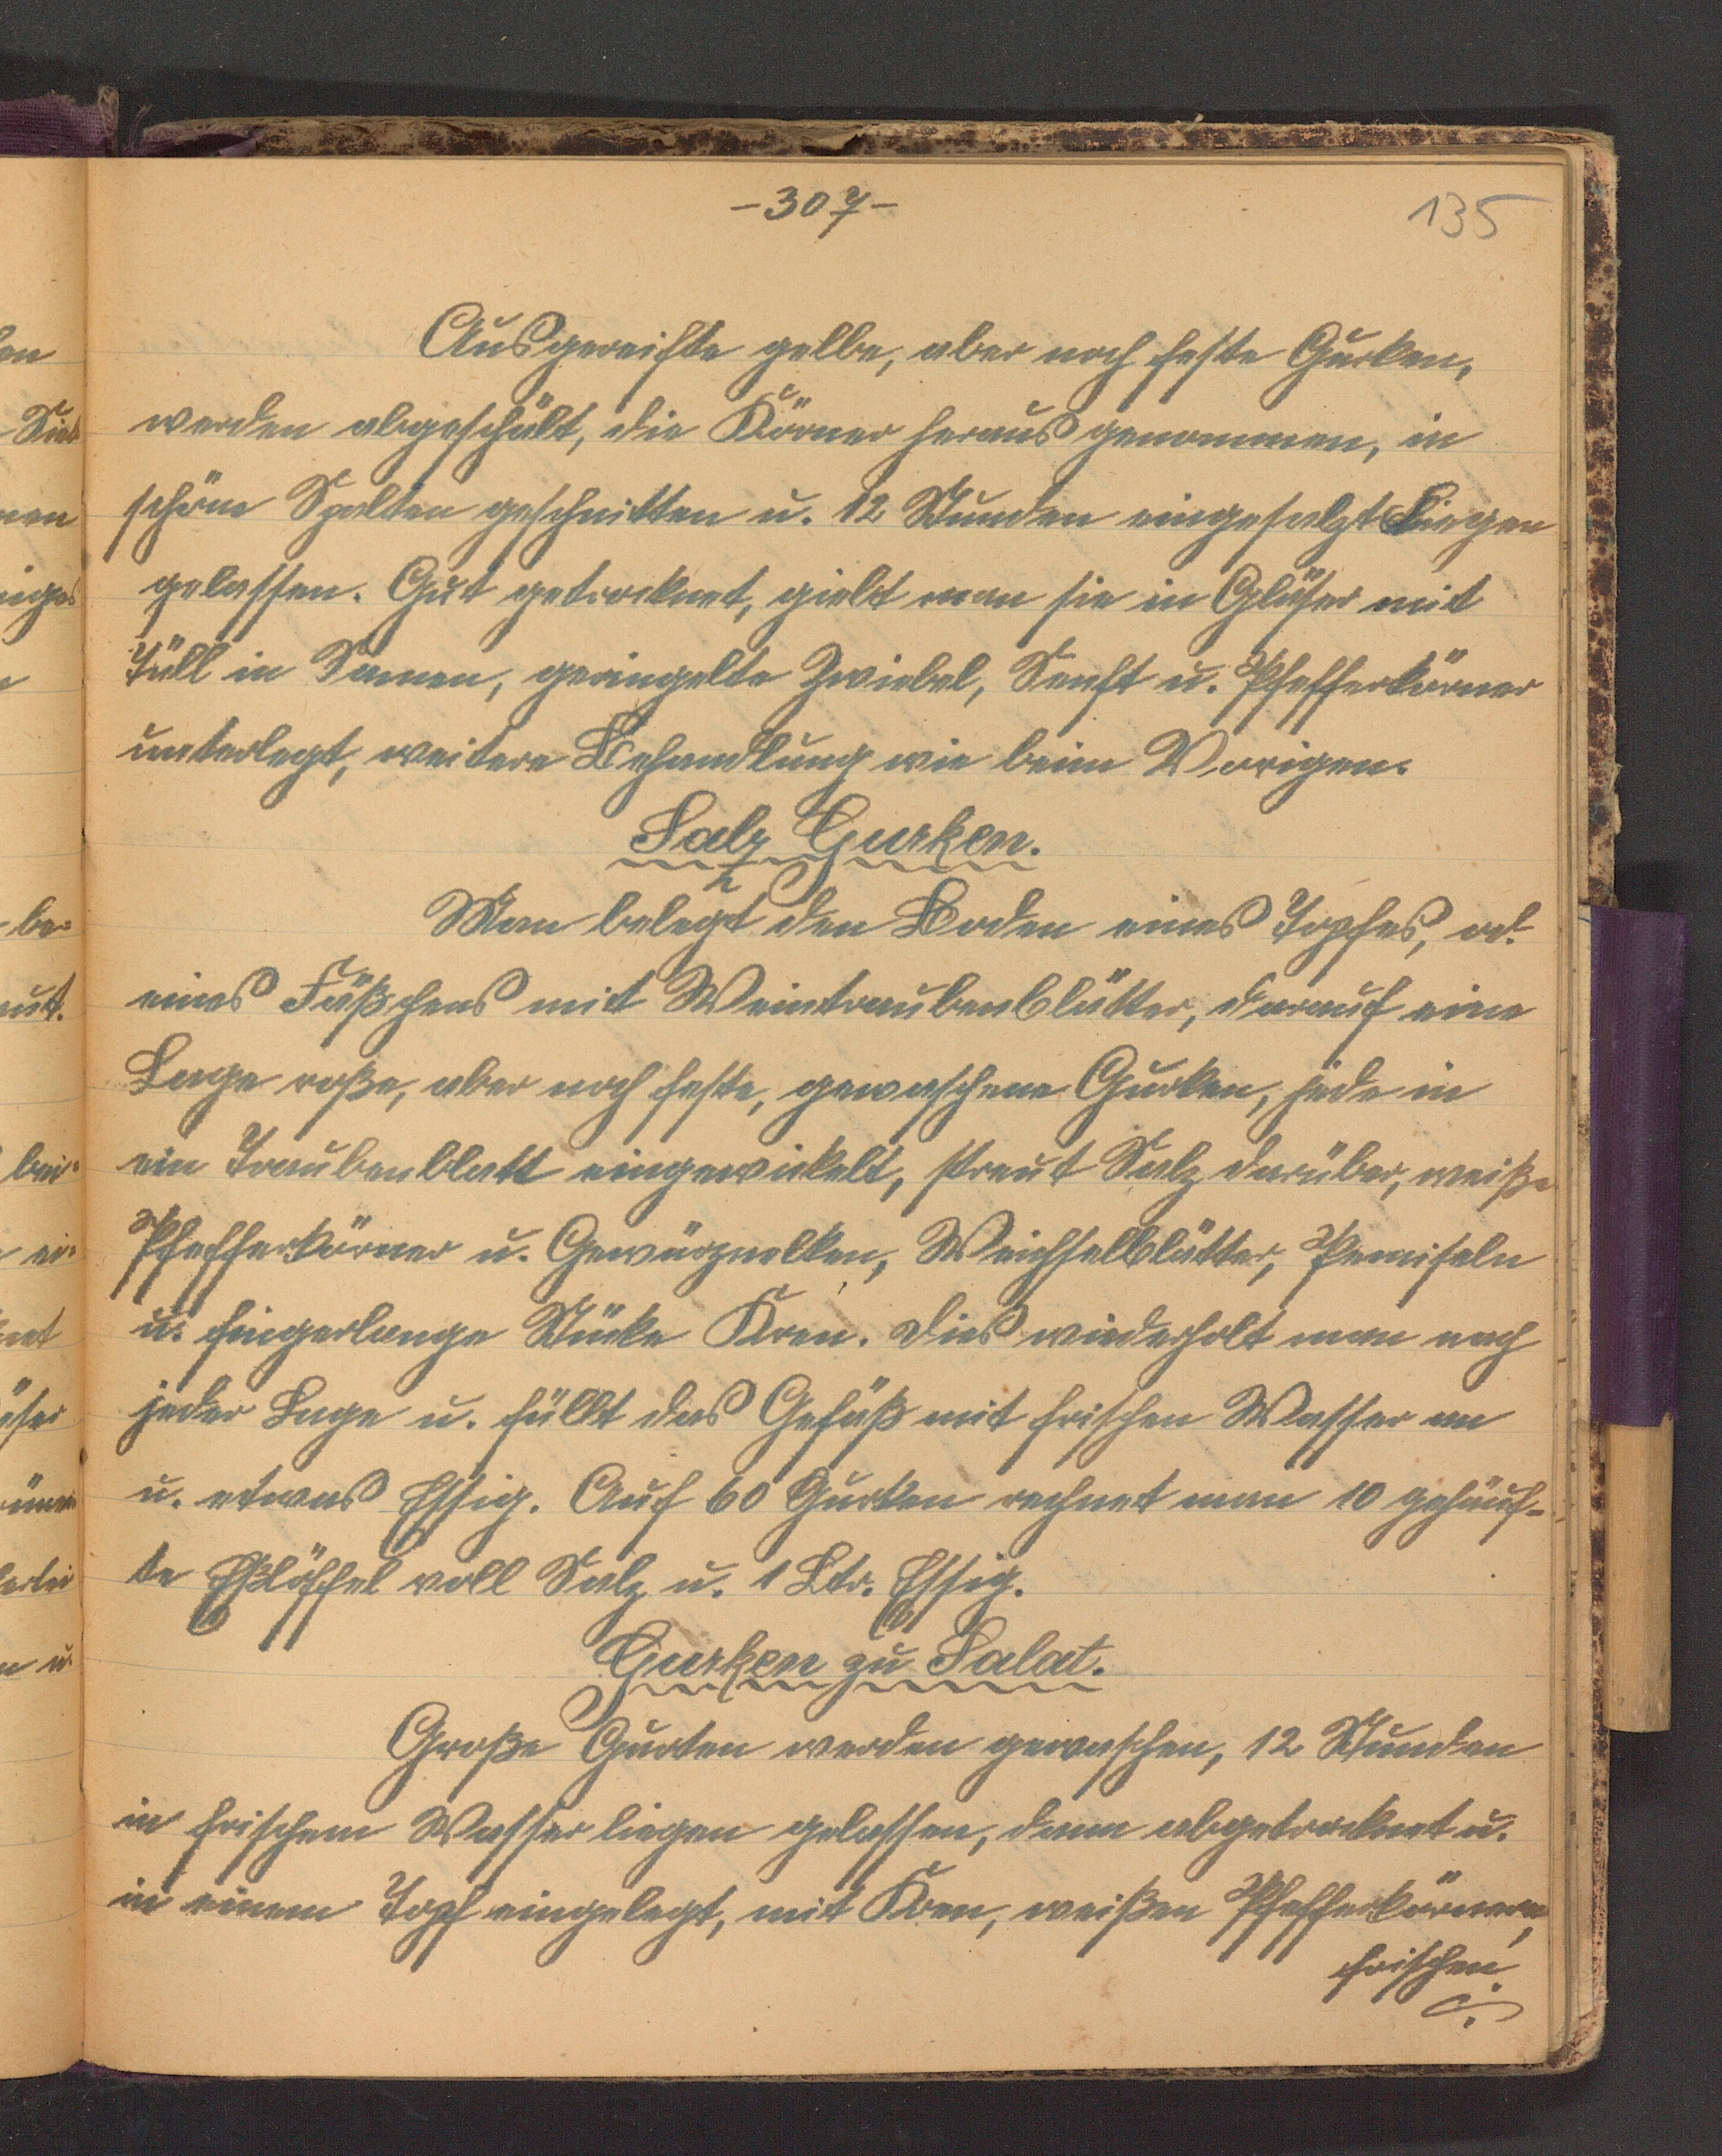 -307-
135
Ausgereifte gelbe, aber noch feste Gurken,
werden abgeschält, die Körner herausgenommen, in
schöne Spalten geschnitten u. 12 Stunden eingesalzt Liegen
gelassen. Gut getrocknet, giebt man sie in Gläser mit
Tüll in Samen, geringelte Zwiebel, Senft u. Pfefferkörner
unterlegt, weitere Behandlung wie beim Vorigen.
Salz Gurken.
Man belegt den Boden eines Topfes, od.
eines Fäßchens mit Weintraubenblätter, darauf eine
Lage roße, aber noch feste, gewaschene Gurken, jede in
ein Traubenblatt eingewickelt, streut Salz darüber, weiße
Pfefferkörner u. Gewürznelken, Weichselblätter,
u. fingerlange Stücke Kren. Dies wiederholt man nach
jeder Lage u. füllt das Gefäß mit frischen Wasser an
u. etwas Essig. Auf 60 Gurken rechnet man 10 gehäuf-
te Eßlöffel voll Salz u. 1 Ltr. Essig.
Gurken zu Salat.
Große Gurken werden gewaschen, 12 Stunden
in frischem Wasser liegen gelassen, dann abgetrocknet u.
in einem Topf eingelegt, mit Kren, weißen Pfefferkörnern,
frischen